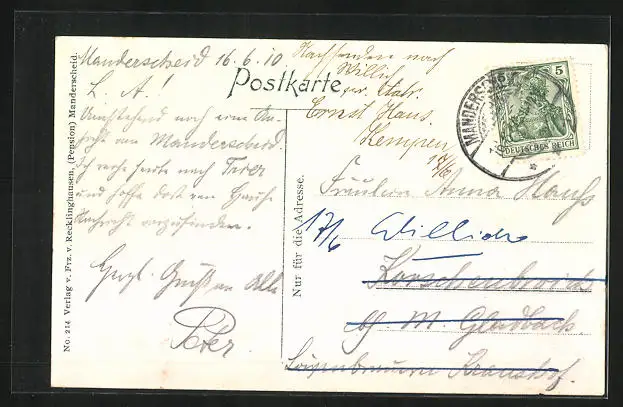 No. 214 Verlag v. Frz. v. Recklinghausen, (Pension) Manderscheid.
Manderscheid 16.6.10
L. A.!
Umstehend noch eine An-
sicht von Manderscheid.
Ich reise heute nach Trier
und hoffe dort von Hause
Nachricht vorzufinden.
Herzl. Gruß an Alle
Peter
Postkarte
Nachsenden nach
Willich
Ernst Haus
Kempen
17/6
MANDERSCHEID
5
DEUTSCHES REICH
Nur für die Adresse.
Fräulein Anna
17/6 Willich
Korschenbroich
b/ M. Gladbach